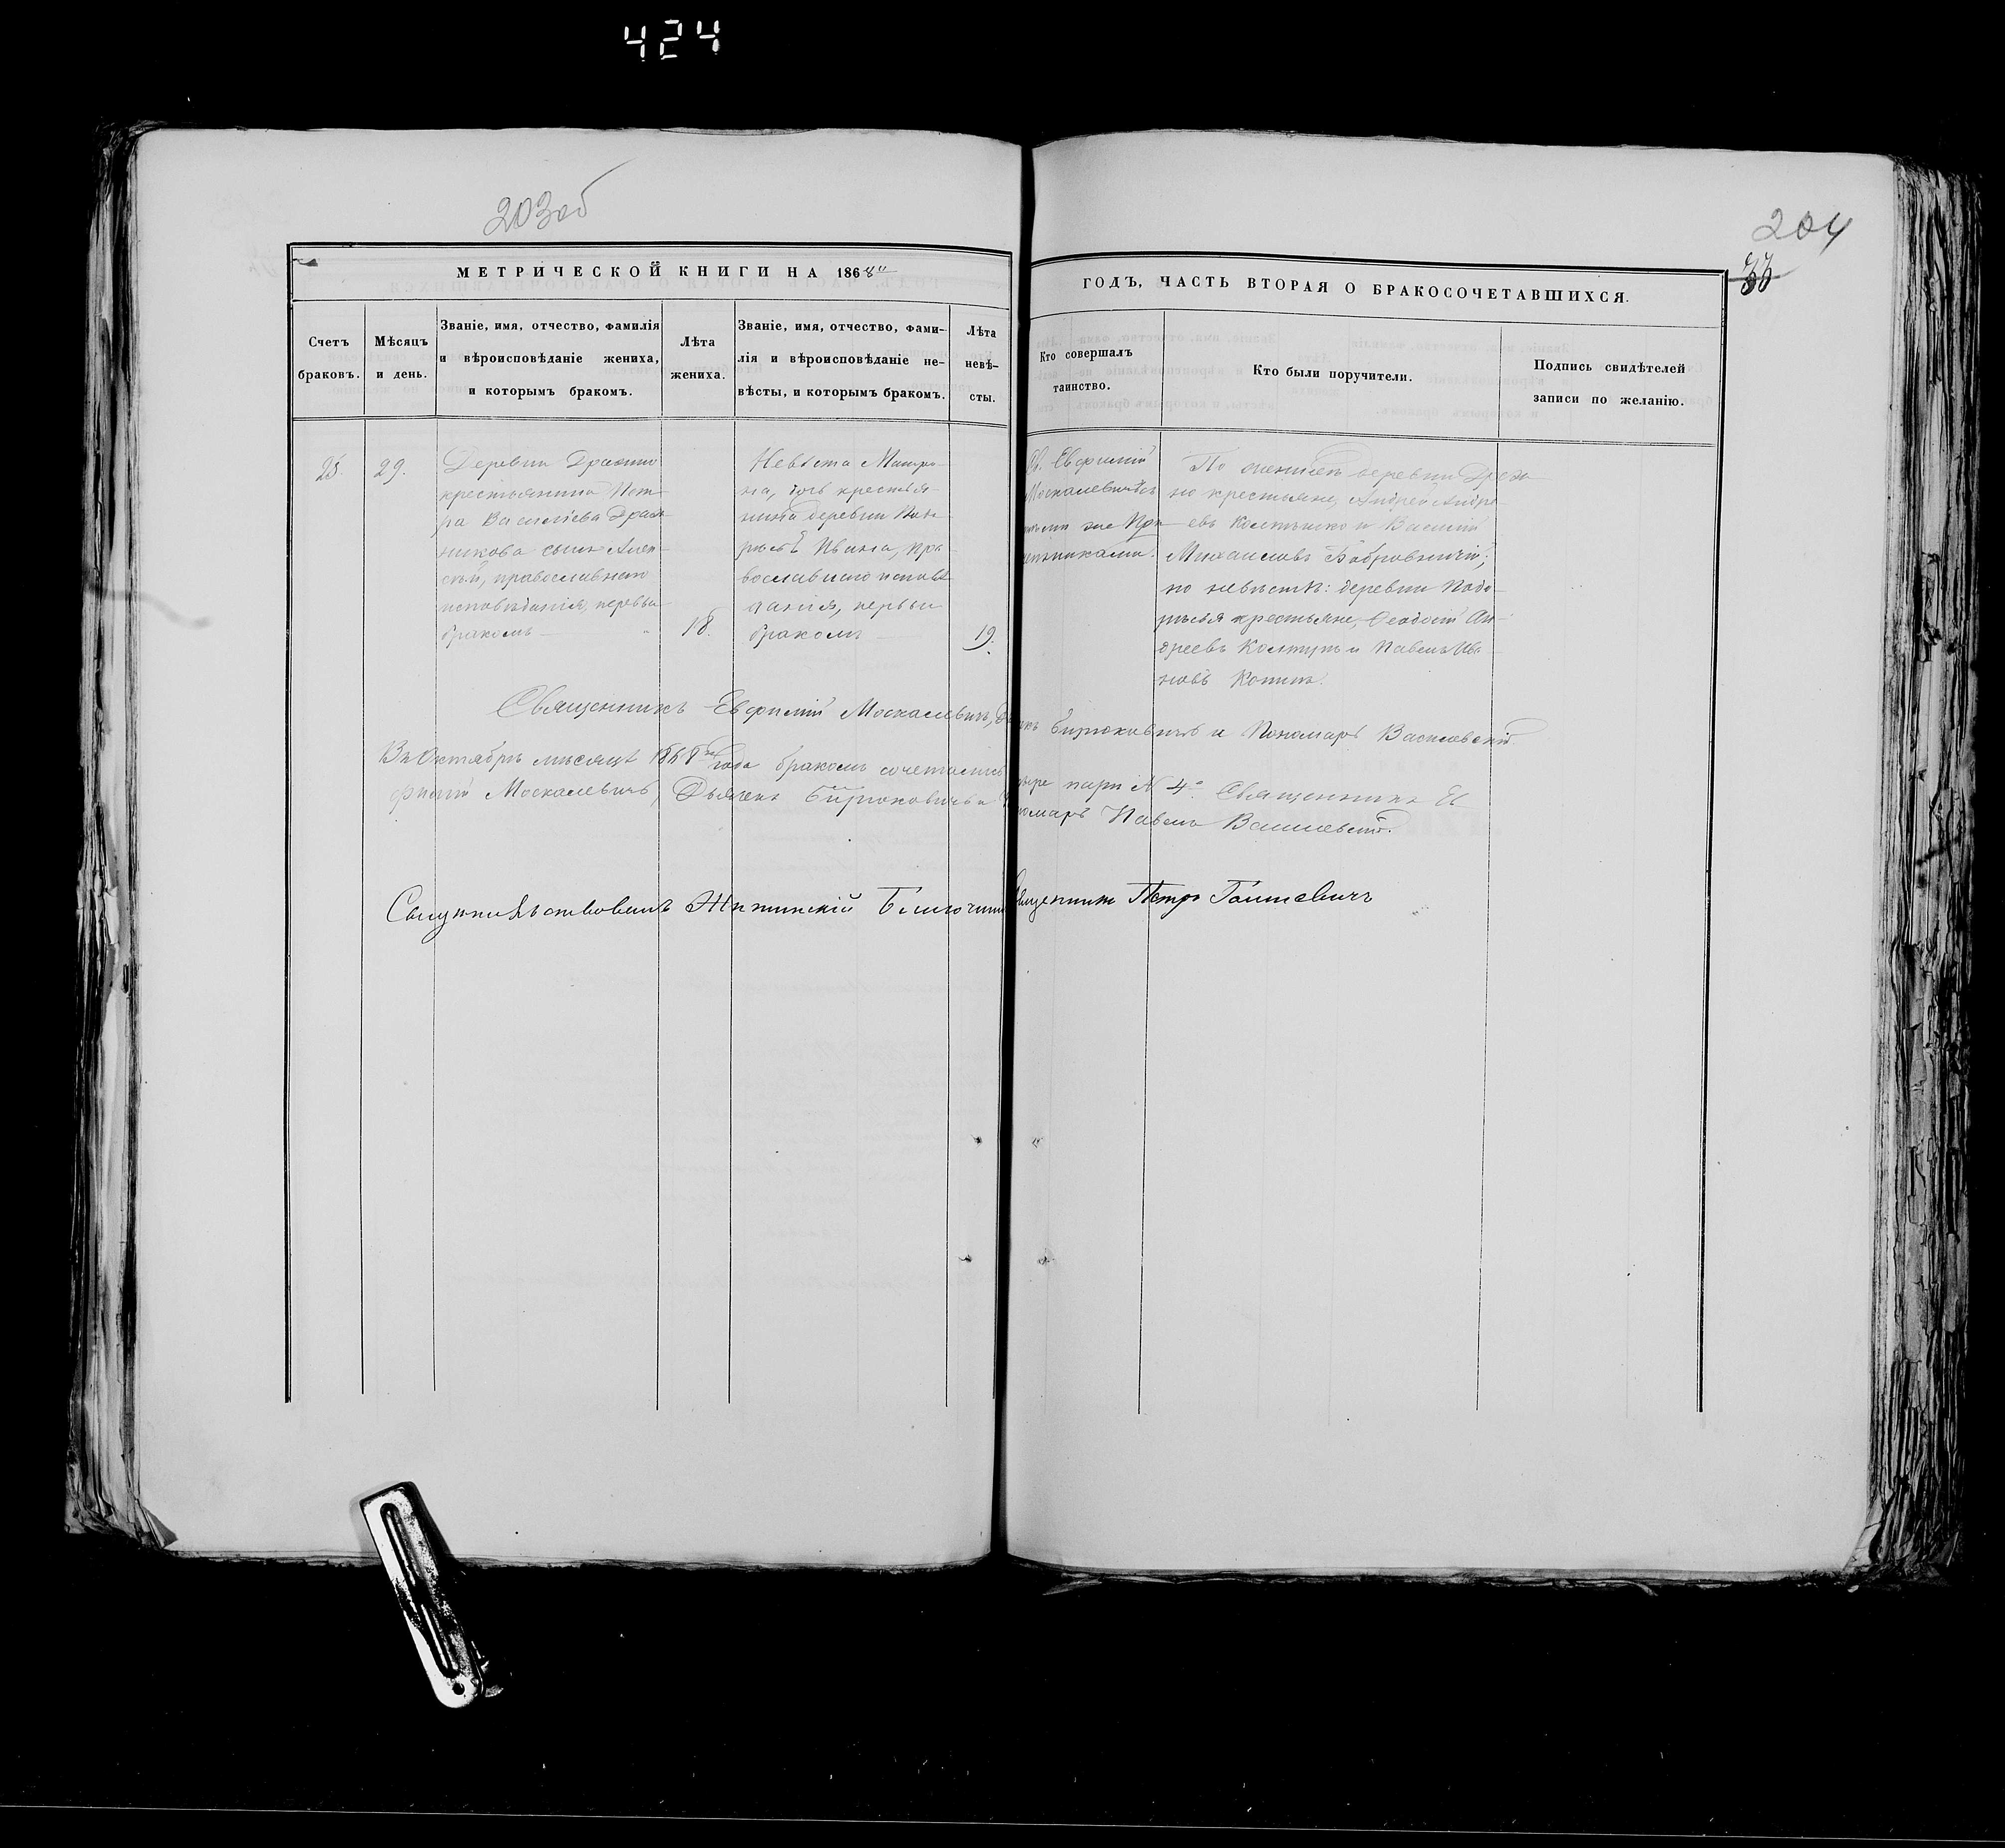 424
203об
204
33
МЕТРИЧЕСКОЙ КНИГИ НА 1868
ГОДЪ, ЧАСТЬ ВТОРАЯ О БРАКОСОЧЕТАВШИХСЯ.
Счетъ
браковъ.
Мѣсяцъ
и день.
Званіе, имя, отчество, фамилія
и вѣроисповѣданіе жениха,
и которымъ бракомъ.
Лѣта
жениха.
Званіе, имя, отчество, фами-
лія и вѣроисповѣданіе не-
вѣсты, и которымъ бракомъ.
Лѣта
невѣ-
сты.
Кто совершалъ
таинство.
Кто были поручители.
Подпись свидѣтелей
записи по желанію.
25.
29.
Деревни
крестьянина Пет-
ра Василіева
сынъ Алек-
сѣй, православнаго
исповѣданія, первымъ
бракомъ
18.
Невѣста Матро-
на, дочь крестья-
нина деревни
Ивана, пра-
вославнаго исповѣ-
данія, первымъ
бракомъ
19.
Св. Евфимій
Москалевичъ съ
тѣми же При-
четниками.
По женихѣ деревни
крестьяне, Андрей Андре-
евъ и Василій
Михаиловъ Бобровничій;
по невѣстѣ: деревни
крестьяне, Ѳеодосій Ан-
дреевъ Колтунъ и Павелъ Ива-
новъ
Священникъ Евфимій Москалевичъ, Дьячекъ Бирюковичъ и Пономарь Василевскій
Въ Октябрѣ мѣсяцѣ 1868го года бракомъ сочетались четыре пары № 4. Священникъ Ев
фимій Москалевичъ, Дьячекъ Бирюковичъ и Пономарь Павелъ Василевскій.
Свидѣтельствовалъ Житинскій Благочинный Священникъ Петръ